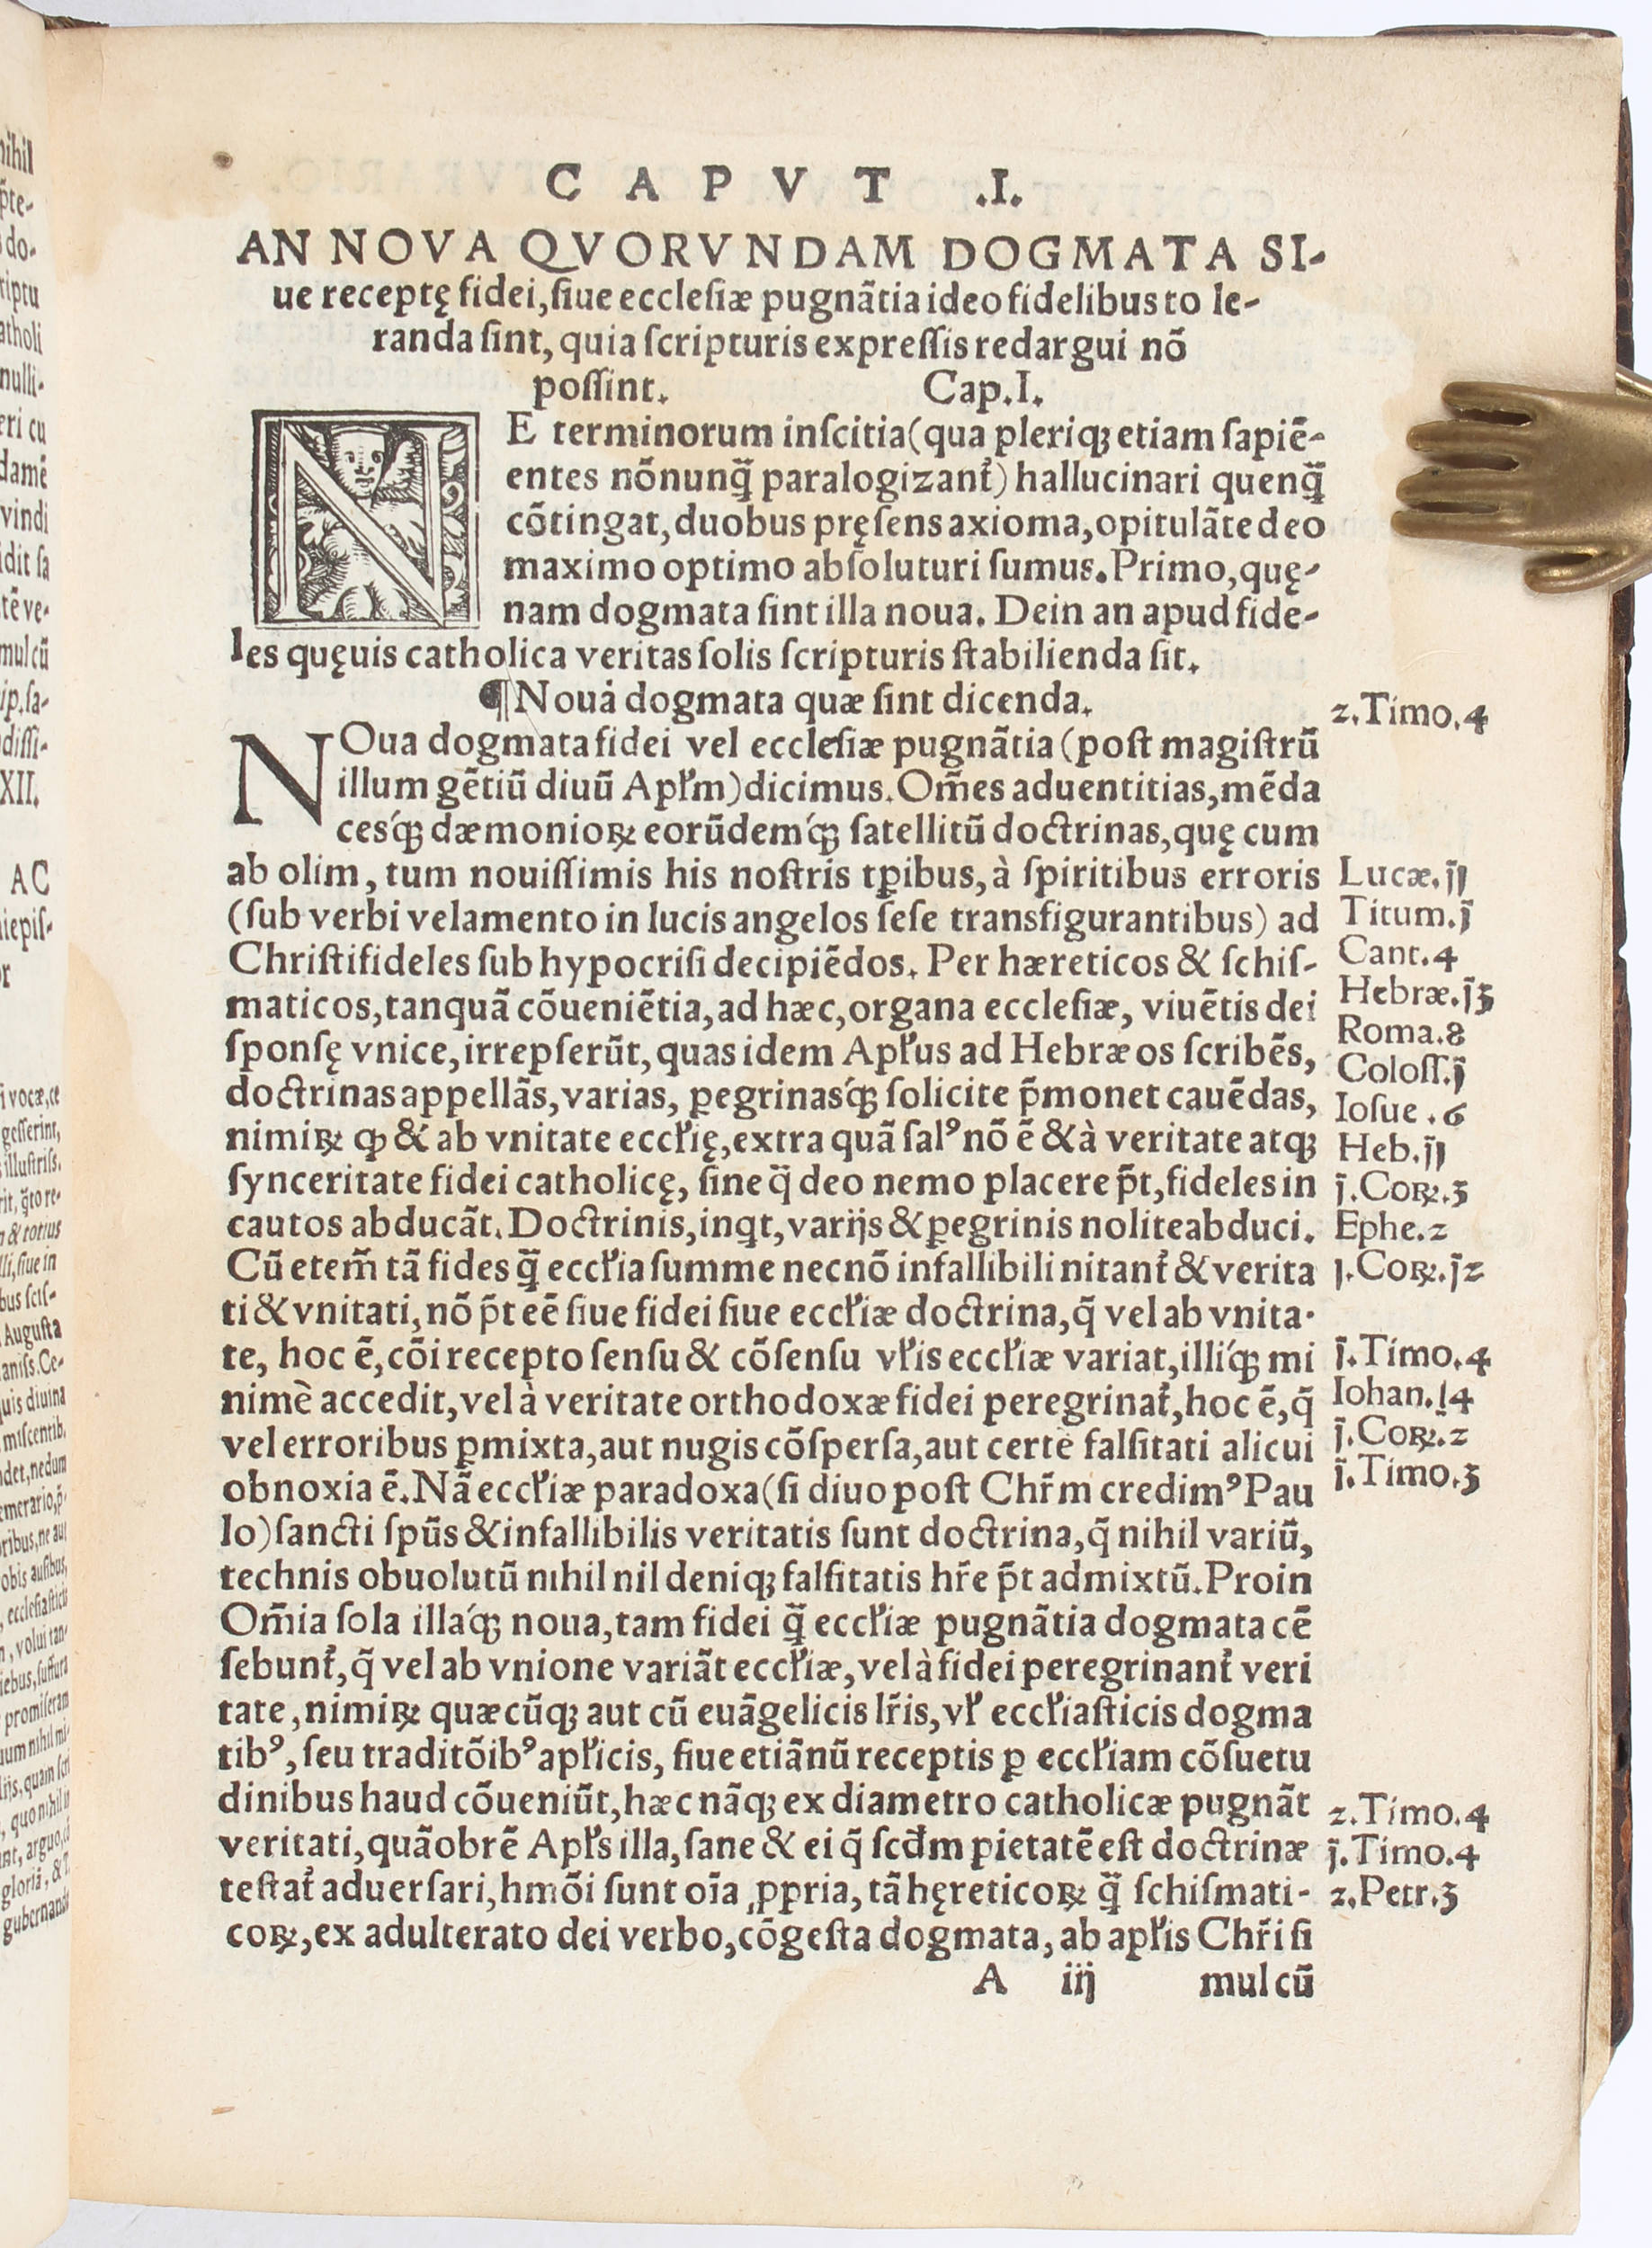 CAPVT .I.
AN NOVA QVORVNDAM DOGMATA SI-
ue receptę fidei, ſiue eccleſiæ pugnãtia ideo fidelibus to le-
randa ſint, quia ſcripturis expreſſis redargui nõ
poſſint. Cap.I.
NE terminorum inſcitia (qua pleriqꝫ etiam ſapiẽ-
entes nõnunq̃ paralogizant᷑) hallucinari quenq̃
cõtingat, duobus pręſens axioma, opitulãte deo
maximo optimo abſoluturi ſumus. Primo, quę-
nam dogmata ſint illa noua. Dein an apud fide-
les quęuis catholica veritas ſolis ſcripturis ſtabilienda ſit.
¶ Noua dogmata quæ ſint dicenda.
2.Timo.4
NOua dogmata fidei vel eccleſiæ pugnãtia (poſt magiſtrũ
illum gẽtiũ diuũ Apľm) dicimus. Om̃es aduentitias, mẽda
ceśqꝫ dæmonioꝝ eorũdeḿqꝫ ſatellitũ doctrinas, quę cum
ab olim, tum nouiſſimis his noſtris tꝑibus, à ſpiritibus erroris
(ſub verbi velamento in lucis angelos ſeſe transfigurantibus) ad
Chriſtifideles ſub hypocriſi decipiẽdos. Per hæreticos & ſchiſ-
maticos, tanquã cõueniẽtia, ad hæc, organa eccleſiæ, viuẽtis dei
ſponſę vnice, irrepſerũt, quas idem Apľus ad Hebræos ſcribẽs,
doctrinas appellãs, varias, ꝑegrinaśqꝫ ſolicite p̃monet cauẽdas,
nimiꝝ ꝙ & ab vnitate eccľię, extra quã ſalꝰ nõ ẽ & à veritate atqꝫ
ſynceritate fidei catholicę, ſine q̃ deo nemo placere p̃t, fideles in
cautos abducãt. Doctrinis, inqt, varijs & ꝑegrinis nolite abduci.
Cũ etem̃ tã fides q̃ eccľia ſumme necnõ infallibili nitant᷑ & verita
ti & vnitati, nõ p̃t eẽ ſiue fidei ſiue eccľiæ doctrina, q̃ vel ab vnita-
te, hoc ẽ, cõi recepto ſenſu & cõſenſu vľis eccľiæ variat, illíqꝫ mi
nimè accedit, vel à veritate orthodoxæ fidei peregrinat᷑, hoc ẽ, q̃
vel erroribus ꝑmixta, aut nugis cõſperſa, aut certè falſitati alicui
obnoxia ẽ. Nã eccľiæ paradoxa (ſi diuo poſt Chr̃m credimꝰ Pau
lo) ſancti ſpũs & infallibilis veritatis ſunt doctrina, q̃ nihil variũ,
technis obuolutũ nihil nil deniqꝫ falſitatis hr̃e p̃t admixtũ. Proin
Om̃ia ſola illáqꝫ noua, tam fidei q̃ eccľiæ pugnãtia dogmata cẽ
ſebunt᷑, q̃ vel ab vnione variãt eccľiæ, vel à fidei peregrinant᷑ veri
tate, nimiꝝ quæcũqꝫ aut cũ euãgelicis lr̃is, vľ eccľiaſticis dogma
tibꝰ, ſeu traditõibꝰ apľicis, ſiue etiãnũ receptis ꝑ eccľiam cõſuetu
dinibus haud cõueniũt, hæc nãqꝫ ex diametro catholicæ pugnãt
veritati, quãobrẽ Apľs illa, ſane & ei q̃ ſcđm pietatẽ eſt doctrinæ
teſtat᷑ aduerſari, hmõi ſunt oĩa ꝓpria, tã hęreticoꝝ q̃ ſchiſmati-
coꝝ, ex adulterato dei verbo, cõgeſta dogmata, ab apľis Chr̃i ſi
A iij mul cũ
Lucæ.j̃j
Titum.j̃
Cant.4
Hebræ.j̃3
Roma.8
Coloſſ.j̃
Ioſue .6
Heb.j̃j
j̃.Coꝝ.3
Ephe.2
j.Coꝝ.j̃2
j̃.Timo.4
Iohan.14
j̃.Coꝝ.2
j̃.Timo.3
2.Timo.4
j̃.Timo.4
2.Petr.3